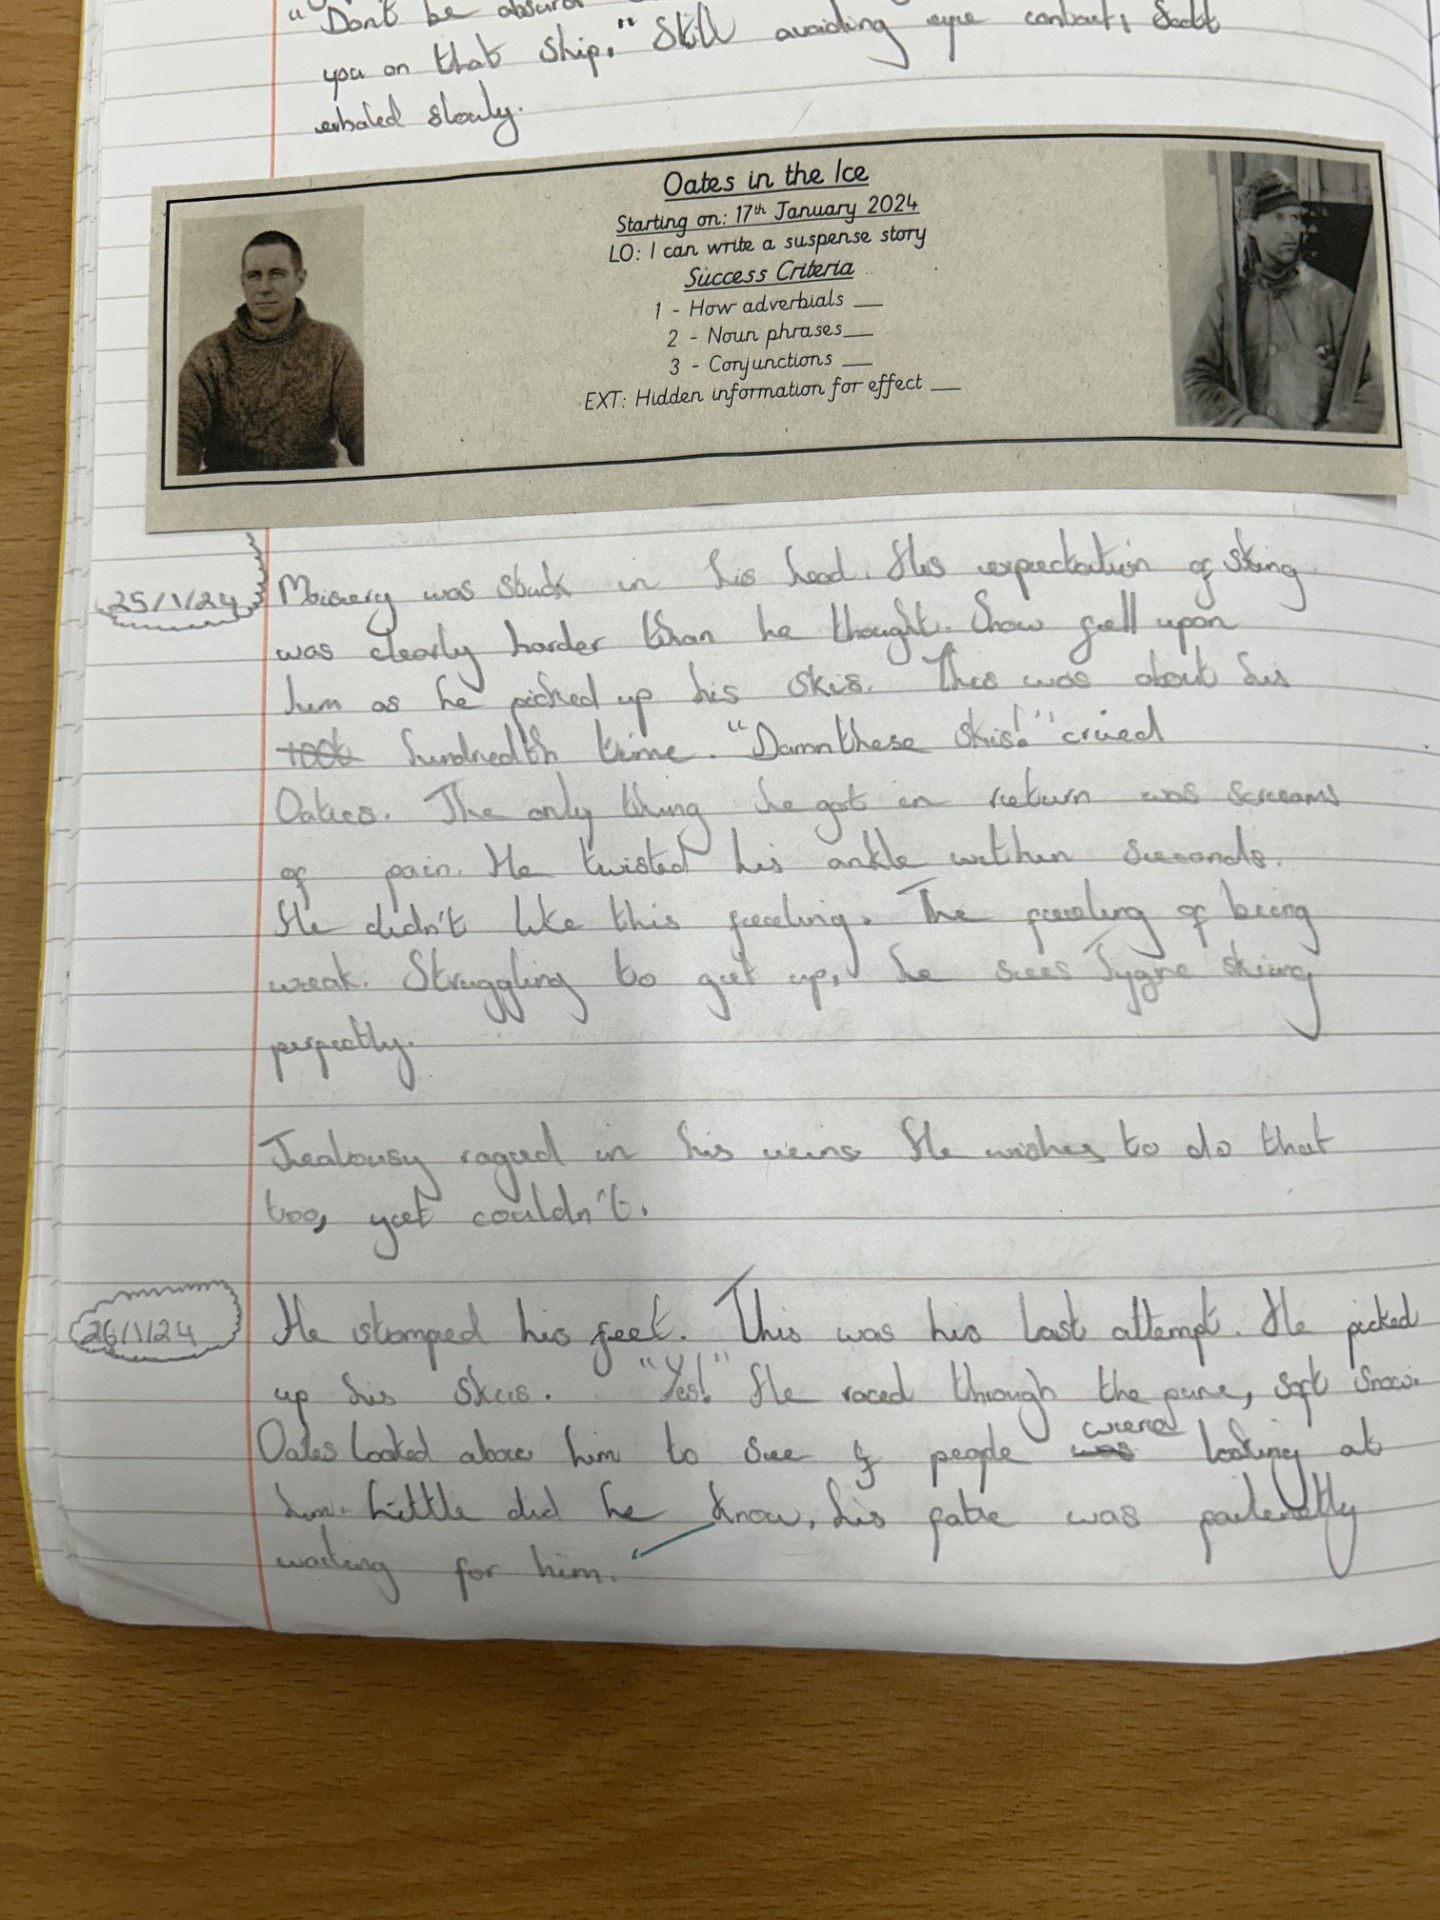 "Dont be absurd
you on that ship," Still avoiding eye contact, Scott
exhaled slowly.
Oates in the Ice
Starting on: 17th January 2024
LO: I can write a suspense story
Success Criteria
1 - How adverbials __
2 - Noun phrases__
3 - Conjunctions __
EXT: Hidden information for effect __
25/1/24 Moisery was stuck in his head. His expectation of skiing
was clearly harder than he thought. Snow fell upon
him as he picked up his skis. This was about his
100th hundredth time. "Damn these skis!" cried
Oates. The only thing he got in return was screams
of pain. He twisted his ankle within seconds.
He didn't like this feeling. The feeling of being
weak. Struggling to get up, he sees Tygne skiing
perfectly.
Jealousy raged in his veins He wishes to do that
too, yet couldn't.
26/1/24 He stomped his feet. This was his last attempt. He picked
up his skis. "Yes!" He raced through the pure, soft snow.
Oates looked above him to see if people was were looking at
him. Little did he know, his fate was patienetly
waiting for him.